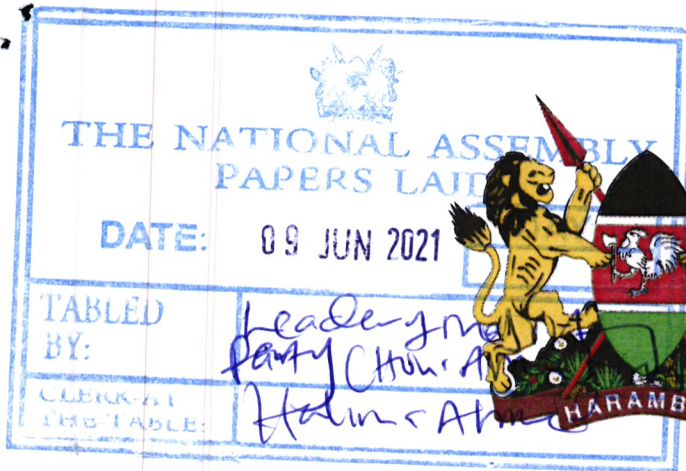 THE NATIONAL ASSEMBLY
PAPERS LAID
DATE: 09 JUN 2021
TABLED BY: Leader of
Party (Hon. A
CLERK-AT THE-TABLE: Halima
HARAMB